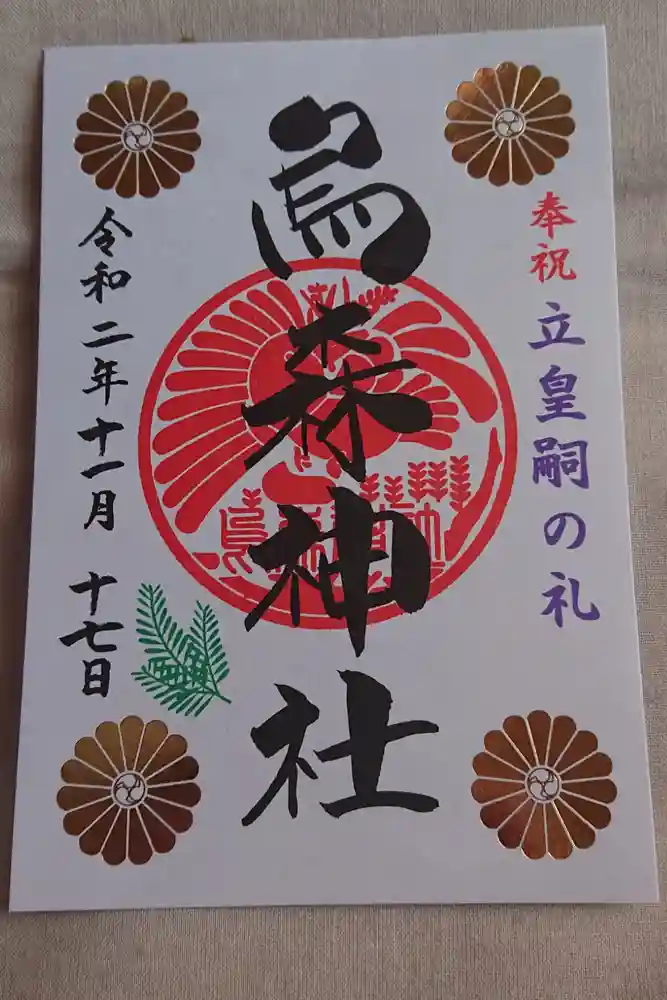 奉祝 立皇嗣の礼
烏森神社
令和二年十一月 十七日